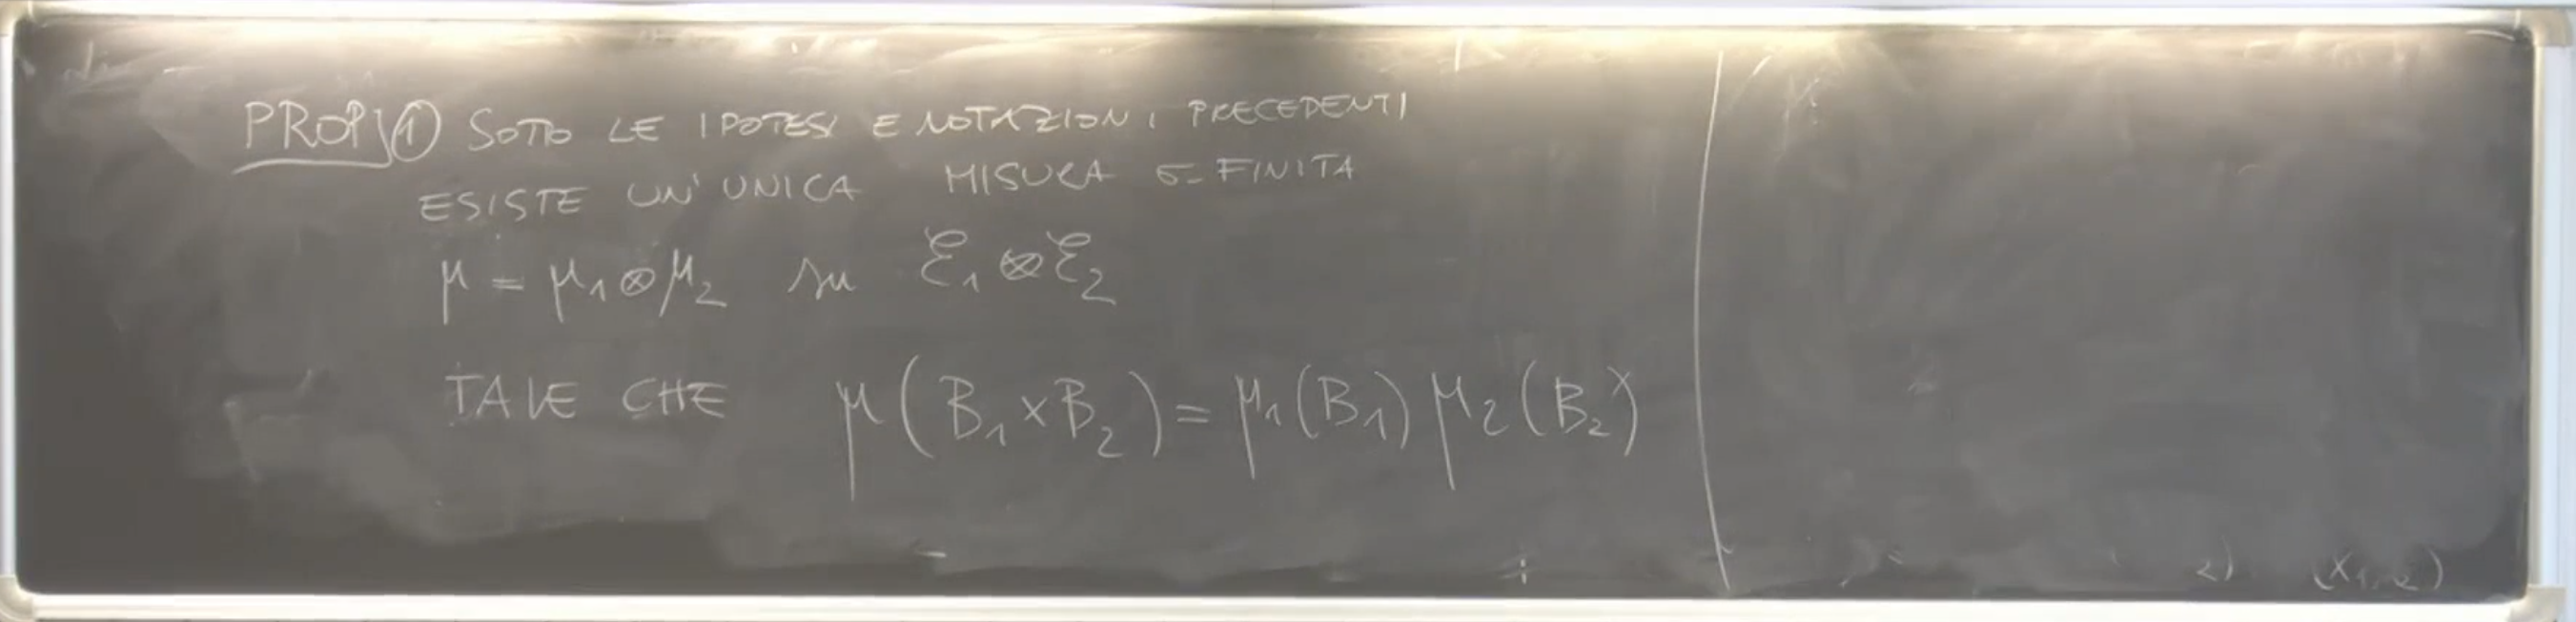 PROP ① SOTTO LE IPOTESI E NOTAZIONI PRECEDENTI
ESISTE UN' UNICA MISURA σ-FINITA
μ = μ₁⊗μ₂ su ℰ₁⊗ℰ₂
TALE CHE μ(B₁×B₂) = μ₁(B₁) μ₂(B₂)